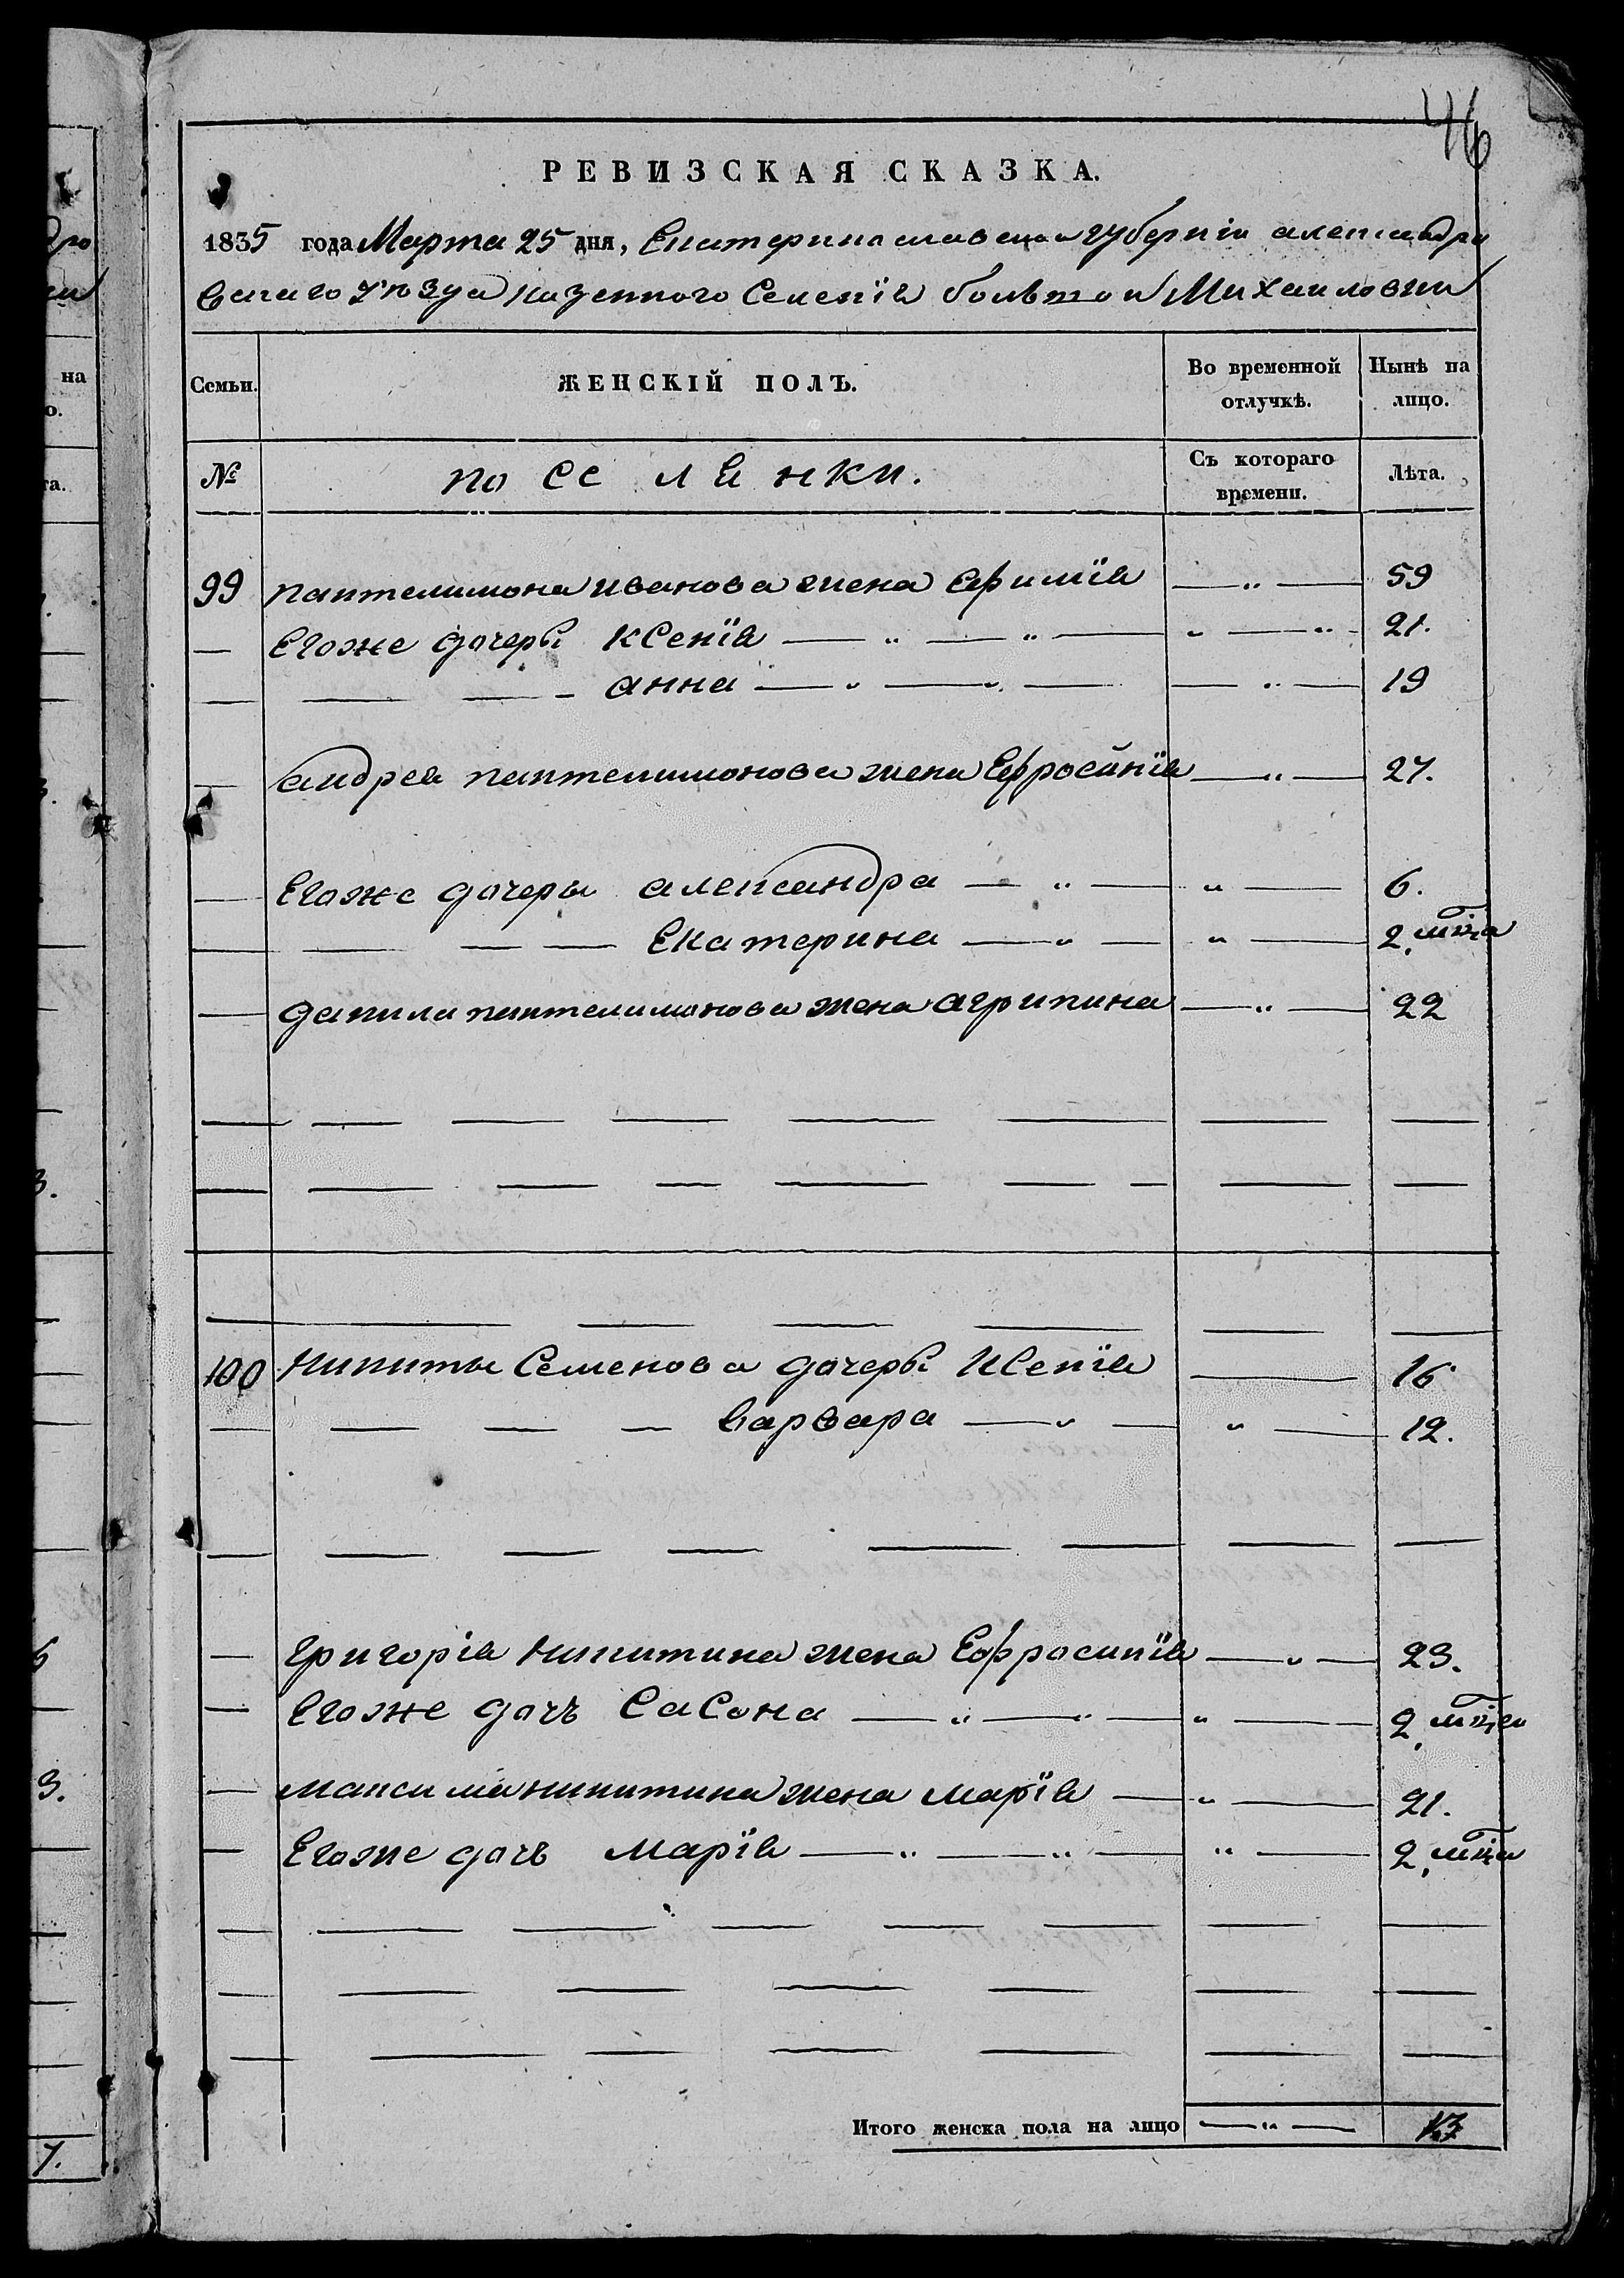 46
РЕВИЗСКАЯ СКАЗКА.
1835 года Марта 25 дня, Екатеринославской губерніи александро
вскаго уѣзда казенного Селенія большой Михайловки
Семьи. ЖЕНСКІЙ ПОЛЪ. Во временной отлучкѣ. Нынѣ на лицо.
№ поселенки. Съ котораго времени. Лѣта.
99 пантелимона иванова жена Ефимія — „ — 59
— Егоже дочеры Ксенія — „ — „ — „ — „ — 21.
— — — анна — „ — „ — — „ — 19
— андрея пантелимонова жена Ефросинія — „ — 27.
— Егоже дочеры александра — „ — „ — 6.
— — — — Екатерина — „ — „ — 2. мца
— данила пантелимонова жена агрипина — „ — 22
100 Никиты Семенова дочеры Ксенія — 16
— — — — варвара — „ — „ — 12.
— григорія Никитина жена Ефросинія — „ — 23.
— Егоже дочь Сасона — „ — „ — „ — 2. мца
— максима никитина жена марія — „ — 21.
— Егоже дочь марія — „ — „ — „ — 2. мца
Итого женска пола на лицо — „ — 13
на
о.
та.
3.
3.
3.
7.